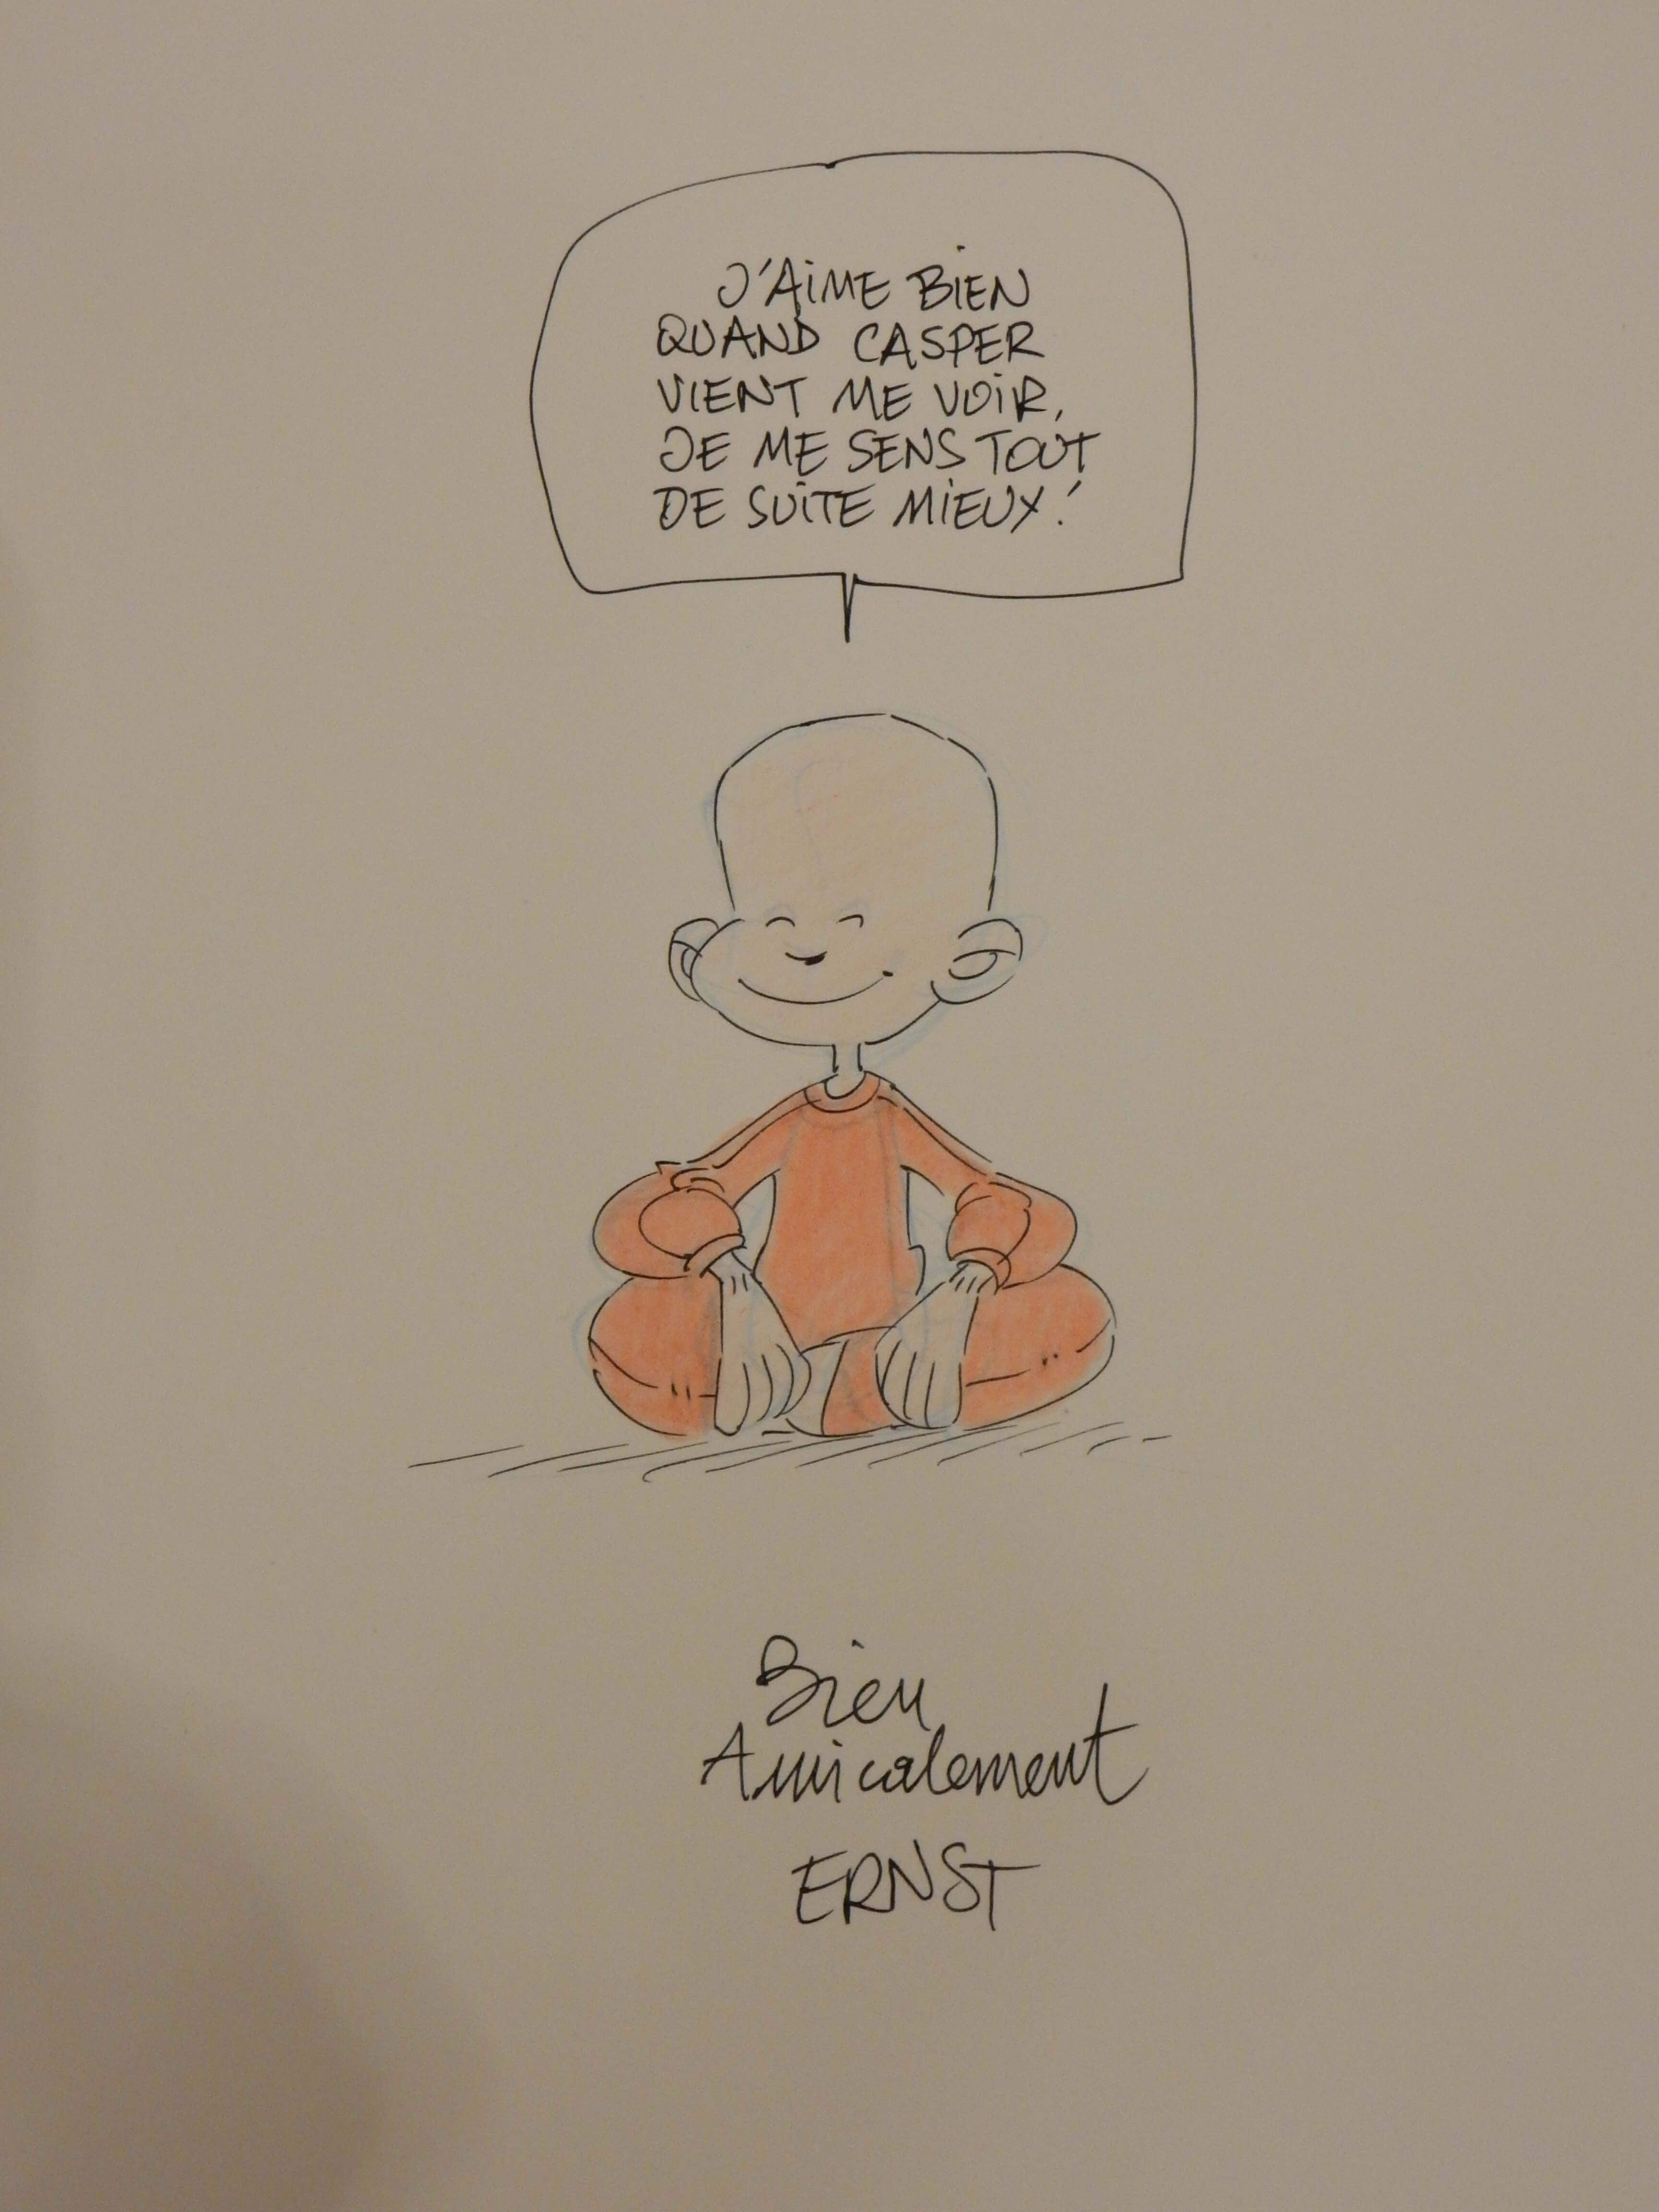 J'AIME BIEN
QUAND CASPER
VIENT ME VOIR,
JE ME SENS TOUT
DE SUITE MIEUX!
Bien
Amicalement
ERNST